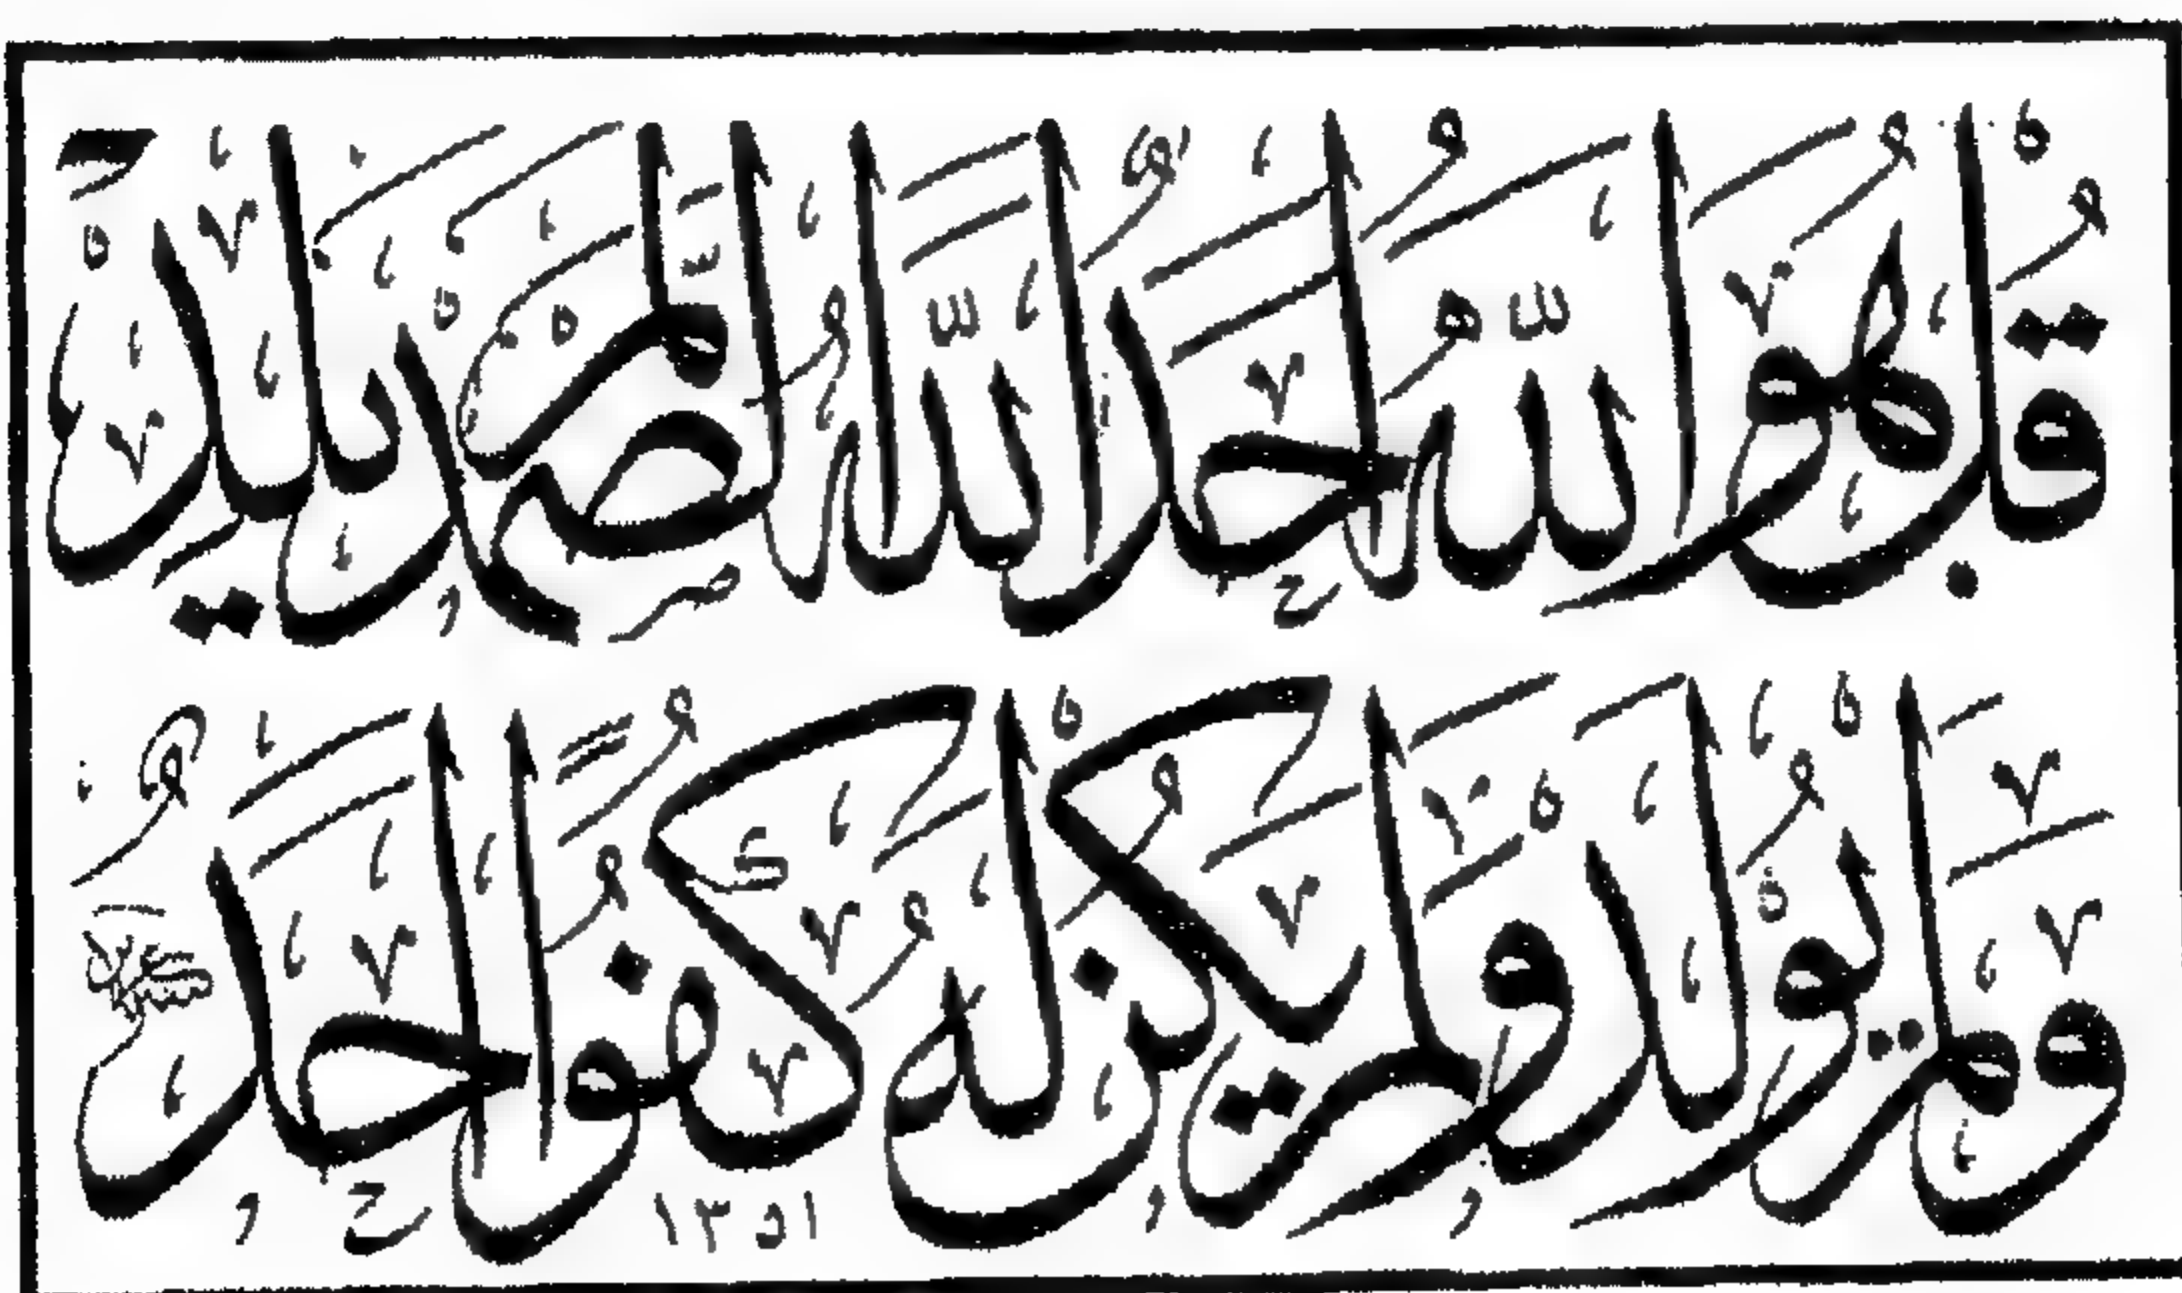 قُلْ هُوَ اللّٰهُ أَحَدٌ اللّٰهُ الصَّمَدُ لَمْ يَلِدْ
وَلَمْ يُولَدْ وَلَمْ يَكُنْ لَهُ كُفُوًا أَحَدٌ
١٣٥١